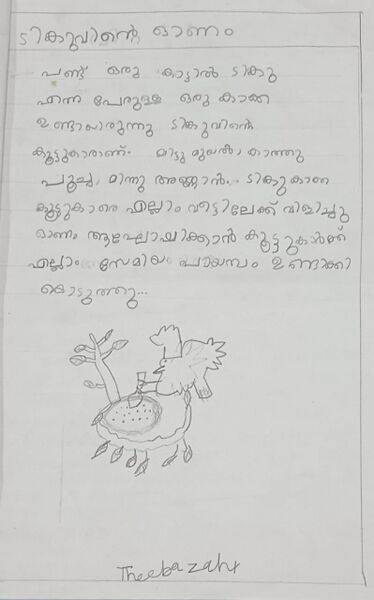 ടിക്കുവിന്റെ ഓണം
പണ്ട് ഒരു കാട്ടിൽ ടിക്കു
എന്ന പേരുള്ള ഒരു കാക്ക
ഉണ്ടായിരുന്നു ടിക്കുവിന്റെ
കൂട്ടുകാരാണ് മിട്ടു മുയൽ, കാത്തു
പൂച്ച, മിന്നു അണ്ണാൻ.. ടിക്കു കാക്ക
കൂട്ടുകാരെ എല്ലാം വീട്ടിലേക്ക് വിളിച്ചു
ഓണം ആഘോഷിക്കാൻ കൂട്ടുകാർക്ക്
എല്ലാം സേമിയം പായസം ഉണ്ടാക്കി
കൊടുത്തു...
Theeba zahr